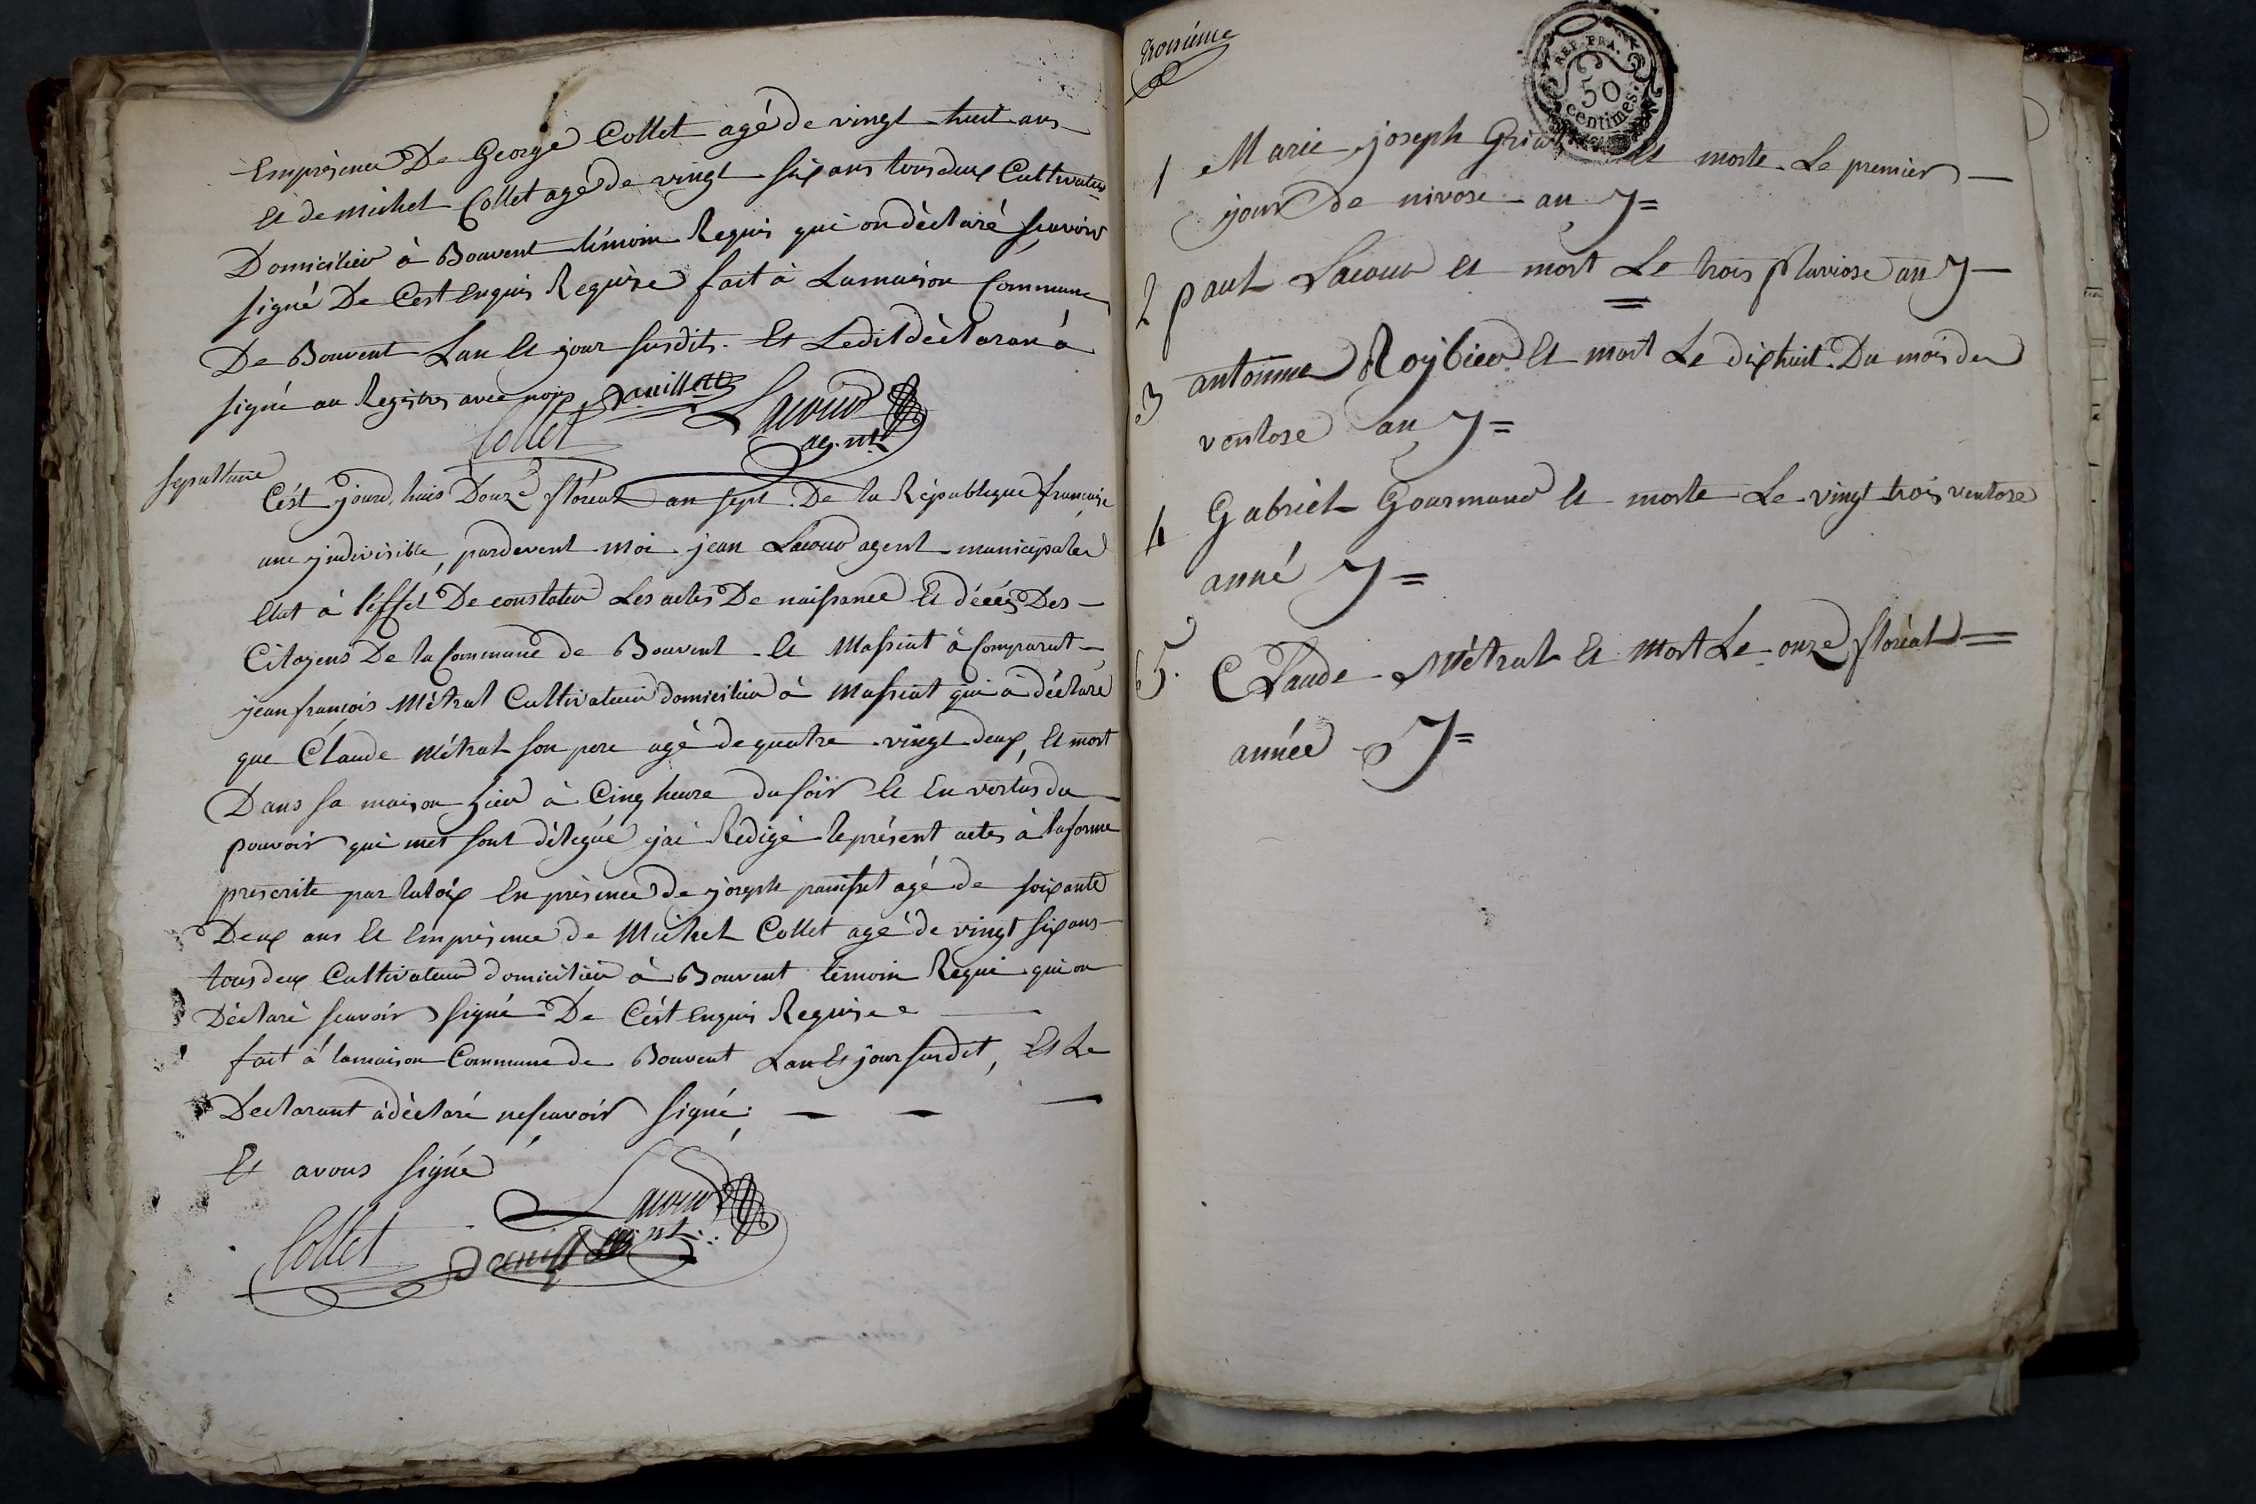 Empresence De George Collet agé de vingt huit ans
Et de michel Collet age de vingt six ans tous deux Cultivateur
Domicilier à Bouvent témoin Requis qui on dèclaré scavoir
signé De Cest enquis Requise fait à Lamaison Commune
De Bouvent Lan Et jour susdits. Et Ledit dèclaran à
signé au Registres avec nous
Collet Lacour
agent
sepulture
Cést jourd'huis Douze floréal an sept De la République francaise
une jndivisible, pardevent moi jean Lacour agent municipale
Elut à l'éffet De constater Les actes De naissance Et décés Des
Citoyens De la Commune de Bouvent Et Massiat à Comparut
jean françois Métral Cultivateur domicilier à Massiat qui à déclaré
que Claude Métral son pere agè de quatre vingt deux, Et mort
Dans sa maison hier à Cinq heure du soir Et En vertus du
pouvoir qui met sont délegué jai Rédigé le présent actes à la forme
prescrite par la loix En prèsence de joseph panisset agé de soixante
Deux ans Et Emprèsence de Michel Collet agé de vingt six ans
tous deux Cultivateur domicilier à Bouvent témoin Requi qui on
Dèclaré scavoir signé De Cést enquis Requise
fait à lamaison Commune de Bouvent Lan Et jour susdit, Et Le
Declarant à dèclaré ne scavoir signé;
Et avons signé
Lacour
Collet
troisième
REP. FRA.
50
centimes.
1 Marie joseph Et morte Le premier
jour de nivose an 7=
2 paul Lacour Et mort Le trois pluviose an 7
3 antoinne Roybier Et mort Le dixhuit Du mois de
ventose an 7=
4 Gabriel Gourmand Et morte Le vingt trois ventose
anné 7=
5. Claude Métral Et Mort Le onze floréal
année 7=